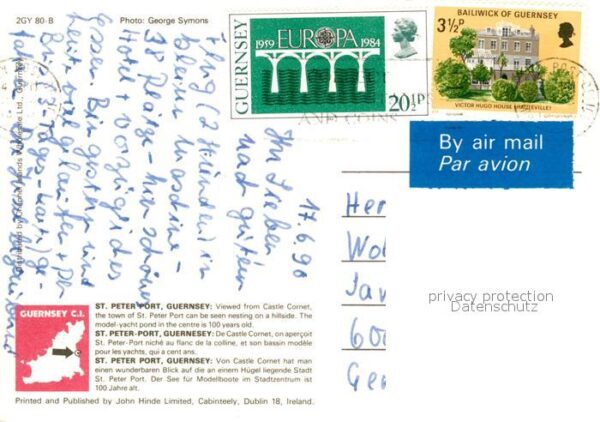 2GY 80-B
Photo: George Symons
GUERNSEY
1959 EUROPA 1984
20½P
BAILIWICK OF GUERNSEY
3½P
VICTOR HUGO HOUSE (HAUTEVILLE)
By air mail
Par avion
17.6.90
Ihr Lieben
nach gutem
Flug (2 Stunden) in
kleiner Maschine -
38 Plätze - hier schönes
Hotel + vorzügliches
Essen. Bin gestern und
heute viel gelaufen + per
Bus
Her
Wol
Jav
600
Ger
privacy protection
Datenschutz
Distributed by Channel Islands Wholesale Ltd., Guernsey
GUERNSEY C.I.
ST. PETER PORT, GUERNSEY: Viewed from Castle Cornet,
the town of St. Peter Port can be seen nesting on a hillside. The
model-yacht pond in the centre is 100 years old.
ST. PETER-PORT, GUERNESEY: De Castle Cornet, on aperçoit
St. Peter Port niché au flanc de la colline, et son bassin modèle
pour les yachts, qui a cent ans.
ST. PETER PORT, GUERNSEY: Von Castle Cornet hat man
einen wunderbaren Blick auf die an einem Hügel liegende Stadt
St. Peter Port. Der See für Modellboote im Stadtzentrum ist
100 Jahre alt.
Printed and Published by John Hinde Limited, Cabinteely, Dublin 18, Ireland.